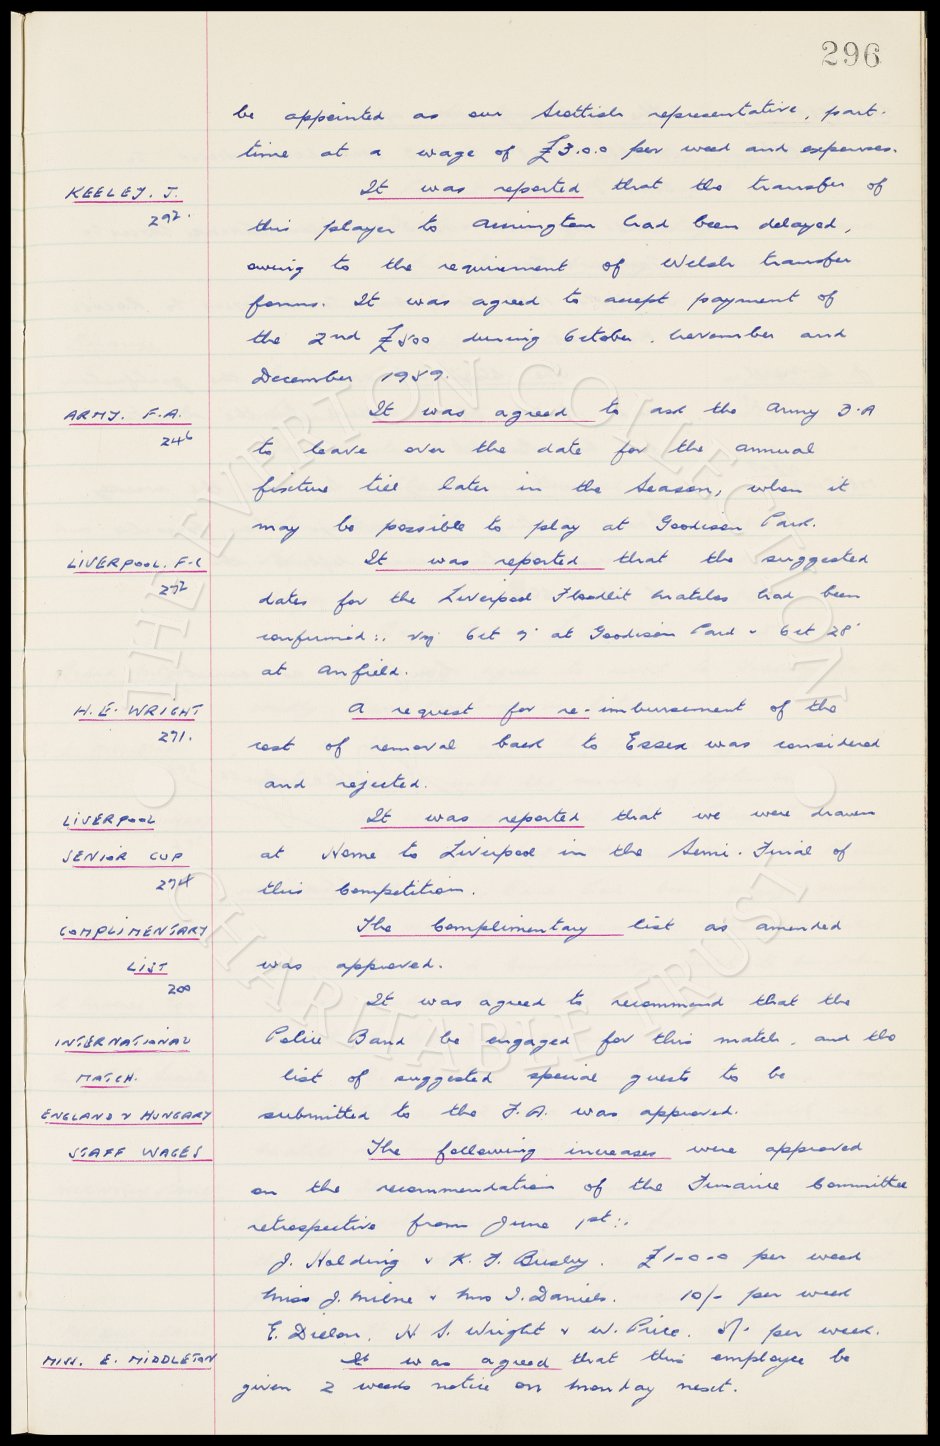 296
be appointed as our Scottish representative, part-
time at a wage of £3.0.0 per week and expenses.
KEELEY. J. It was reported that the transfer of
292. this player to Accrington had been delayed,
owing to the requirement of Welsh transfer
forms. It was agreed to accept payment of
the 2nd £500 during October, November and
December 1959.
ARMY. F.A. It was agreed to ask the Army F.A
246 to leave over the date for the annual
fixture till later in the Season, when it
may be possible to play at Goodison Park.
LIVERPOOL. F.C It was reported that the suggested
292 dates for the Liverpool Floodlit matches had been
confirmed:. viz Oct 7th at Goodison Park & Oct 28th
at Anfield.
H.E. WRIGHT A request for re-imbursement of the
291. cost of removal back to Essex was considered
and rejected.
LIVERPOOL It was reported that we were drawn
SENIOR CUP at Home to Liverpool in the Semi-Final of
274 this Competition.
COMPLIMENTARY The Complimentary list as amended
LIST was approved.
200 It was agreed to recommend that the
INTERNATIONAL Police Band be engaged for this match, and the
MATCH. list of suggested special guests to be
ENGLAND v HUNGARY submitted to the F.A. was approved.
STAFF WAGES The following increases were approved
on the recommendation of the Finance Committee
retrospective from June 1st:.
J. Holding & K. F. Busby. £1-0-0 per week
Miss J. Milne & Mrs I. Daniels. 10/- per week
E. Dillon, H. S. Wright & W. Price. 5/- per week.
MISS. E. MIDDLETON It was agreed that this employee be
given 2 weeks notice on Monday next.
THE EVERTON COLLECTION
CHARITABLE TRUST